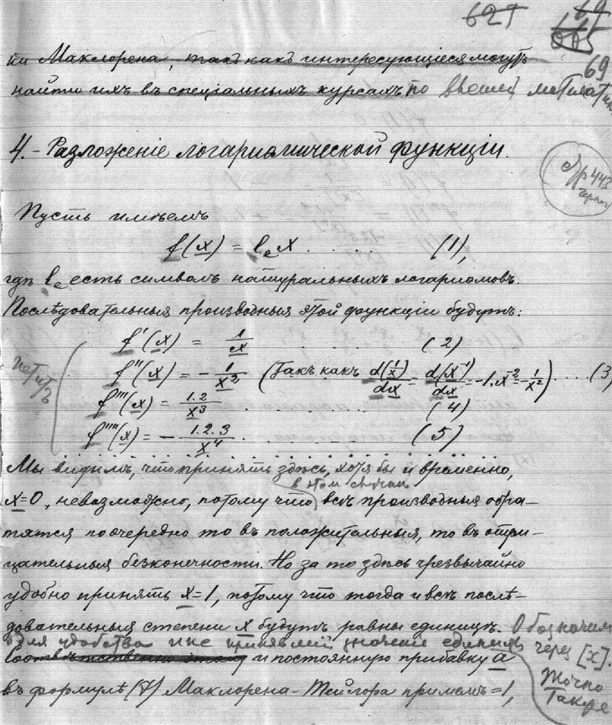 627
69
69
ти Маклорена, такъ какъ интересующіеся могутъ
найти ихъ въ спеціальныхъ курсахъ по высшей математик
4.- Разложеніе логариѳмической функціи.
Пусть имѣемъ
f(x) = lₑx . . . . (1),
гдѣ lₑ есть символъ натуральныхъ логариѳмовъ.
Послѣдовательныя производныя этой функціи будутъ:
f'(x) = 1/x . . . . (2)
f''(x) = - 1/x² (Такъ какъ d(1/x)/dx = d(x⁻¹)/dx = -1.x⁻² = -1/x²) . . . . (3)
f'''(x) = 1.2/x³ . . . . (4)
f''''(x) = - 1.2.3/x⁴ . . . . (5)
Мы видимъ, что принять здѣсь, хотя бы и временно,
въ этом случаи
x=0, невозможно, потому что всѣ производныя обра-
тятся поочередно то въ положительныя, то въ отри-
цательныя безконечности. Но за то здѣсь чрезвычайно
удобно принять x=1, потому что тогда и всѣ послѣ-
довательныя степени x будутъ равны единицѣ. Обозначим
для удобства и не принявшій значение единицы через [x].
и постоянную прибавку a
Точно также
въ формулѣ (7) Маклорена-Тейлора примемъ =1,